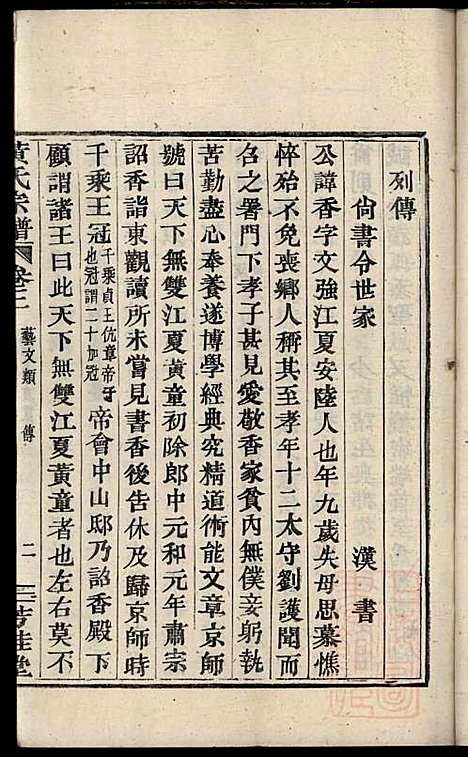 列傳
尙書令世家　漢書
公諱香字文強江夏安陸人也年九歲失母思慕憔
悴殆不免喪鄉人稱其至孝年十二太守劉護聞而
名之署門下孝子甚見愛敬香家貧內無僕妾躬執
苦勤盡心奉養遂博學經典究精道術能文章京師
號曰天下無雙江夏黃童初除郎中元和元年肅宗
詔香詣東觀讀所未嘗見書香後告休及歸京師時
千乘王冠千乘貞王伉章帝子也冠謂二十加冠帝會中山邸乃詔香殿下
顧謂諸王曰此天下無雙江夏黃童者也左右莫不
黃氏宗譜　卷三　藝文類　傳　二